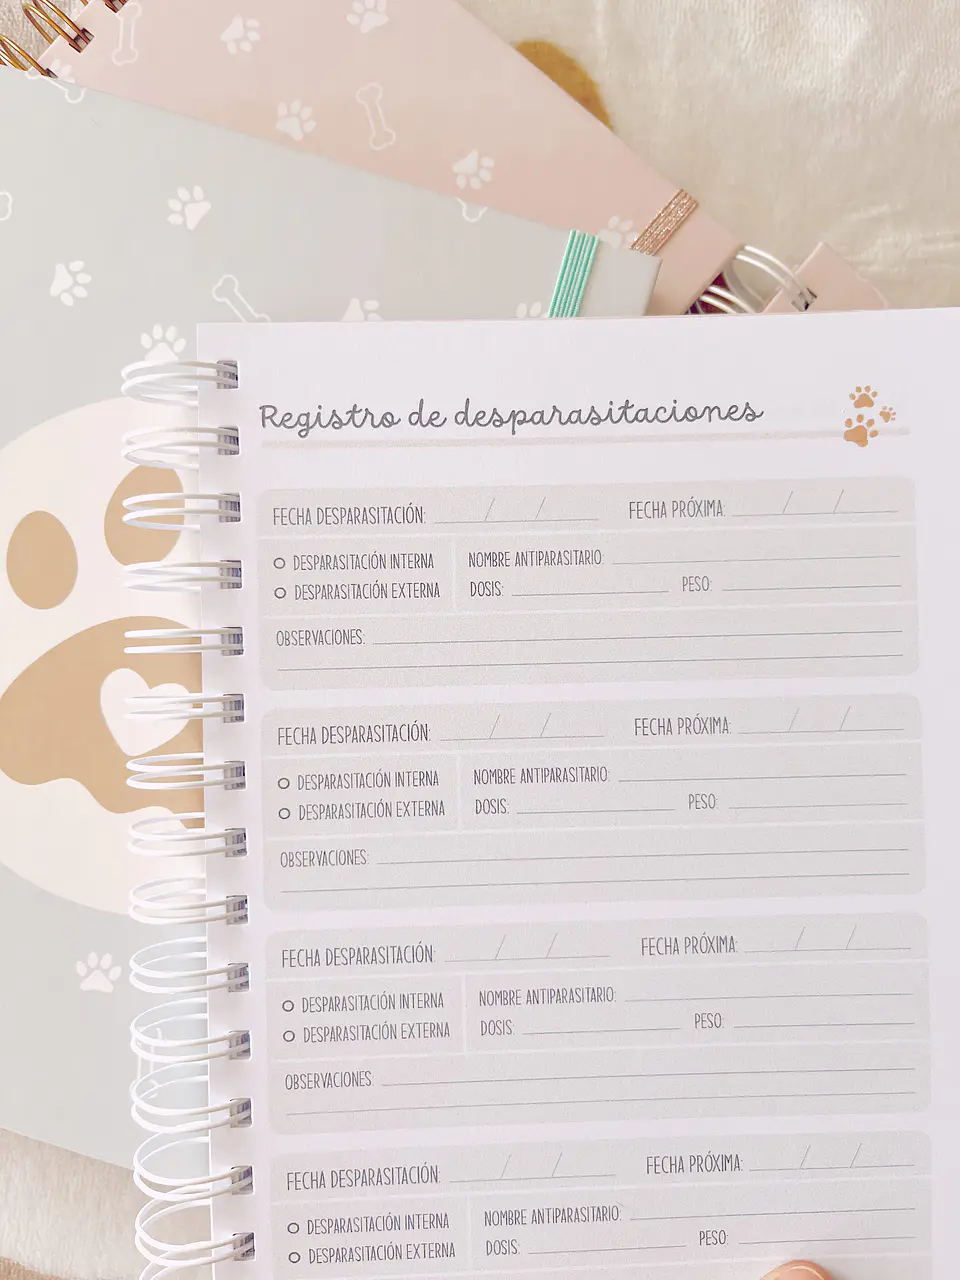 Registro de desparasitaciones
FECHA DESPARASITACIÓN: / / FECHA PRÓXIMA: / /
DESPARASITACIÓN INTERNA NOMBRE ANTIPARASITARIO:
DESPARASITACIÓN EXTERNA DOSIS: PESO:
OBSERVACIONES:
FECHA DESPARASITACIÓN: / / FECHA PRÓXIMA: / /
DESPARASITACIÓN INTERNA NOMBRE ANTIPARASITARIO:
DESPARASITACIÓN EXTERNA DOSIS: PESO:
OBSERVACIONES:
FECHA DESPARASITACIÓN: / / FECHA PRÓXIMA: / /
DESPARASITACIÓN INTERNA NOMBRE ANTIPARASITARIO:
DESPARASITACIÓN EXTERNA DOSIS: PESO:
OBSERVACIONES:
FECHA DESPARASITACIÓN: / / FECHA PRÓXIMA: / /
DESPARASITACIÓN INTERNA NOMBRE ANTIPARASITARIO:
DESPARASITACIÓN EXTERNA DOSIS: PESO: